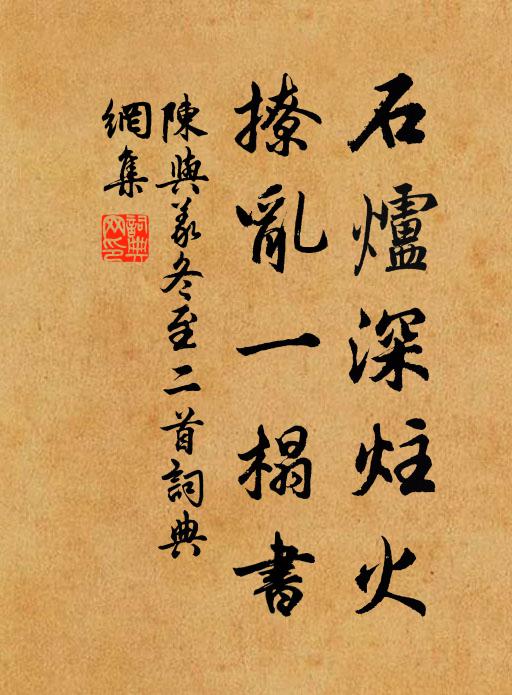 石爐深炷火
撩亂一榻書
陳與義冬至二首詞典
網集
詞典網印